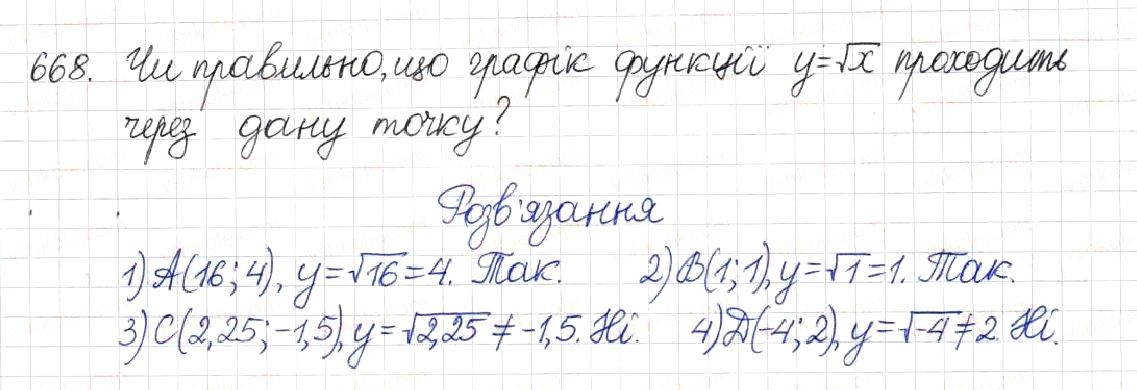 668. Чи правильно, що графік функції y=√x проходить
через дану точку?
Розв'язання
1) A(16; 4), y=√16=4. Так. 2) B(1; 1), y=√1=1. Так.
3) C(2,25; -1,5), y=√2,25≠-1,5. Ні. 4) D(-4; 2), y=√-4≠2. Ні.